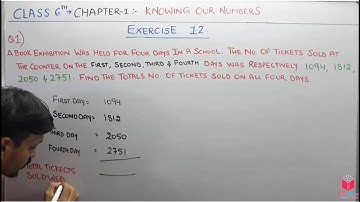 CLASS 6TH → CHAPTER-1:- KNOWING OUR NUMBERS
EXERCISE 1.2
Q1)
A BOOK EXHIBITION WAS HELD FOR FOUR DAYS IN A SCHOOL. THE NO. OF TICKETS SOLD AT
THE COUNTER ON THE FIRST, SECOND, THIRD & FOURTH DAYS WAS RESPECTIVELY 1094, 1812,
2050 & 2751. FIND THE TOTALS NO. OF TICKETS SOLD ON ALL FOUR DAYS.
FIRST DAY = 1094
SECOND DAY = 1812
THIRD DAY = 2050
FOURTH DAY = 2751
TOTAL TICKETS
SOLD WER